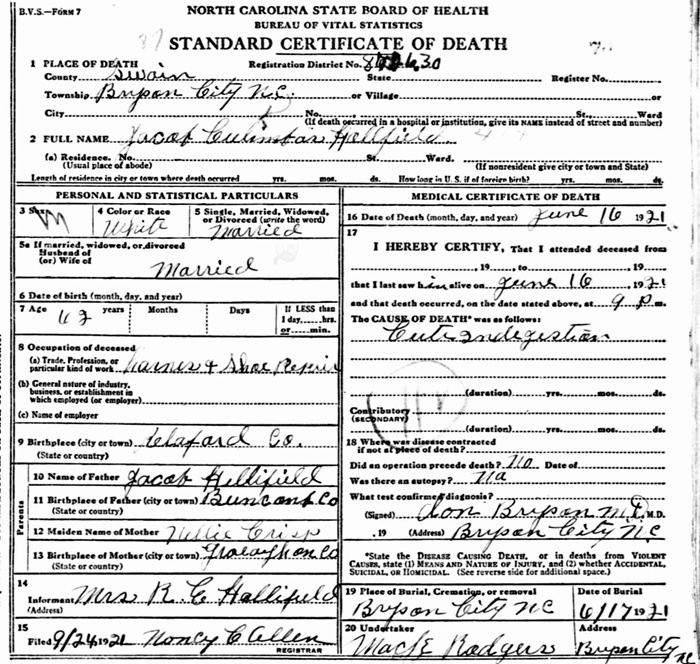 B.V.S.—FORM 7
NORTH CAROLINA STATE BOARD OF HEALTH
BUREAU OF VITAL STATISTICS
STANDARD CERTIFICATE OF DEATH
1 PLACE OF DEATH Registration District No. 630
County Swain State Register No.
Township Bryson City N.C. or Village or
City No. St., Ward
(If death occurred in a hospital or institution, give its NAME instead of street and number)
2 FULL NAME Jacob Hollifield
(a) Residence. No. St. Ward.
(Usual place of abode) (If nonresident give city or town and State)
Length of residence in city or town where death occurred yrs. mos. ds. How long in U.S. if of foreign birth? yrs. mos. ds.
PERSONAL AND STATISTICAL PARTICULARS
3 Sex M
4 Color or Race White
5 Single, Married, Widowed, or Divorced (write the word) Married
5a If married, widowed, or divorced
Husband of
(or) Wife of Married
6 Date of birth (month, day, and year)
7 Age 62 years Months Days If LESS than
1 day, hrs.
or min.
8 Occupation of deceased
(a) Trade, Profession, or
particular kind of work Harnes & Shoe Repair
(b) General nature of industry,
business, or establishment in
which employed (or employer)
(c) Name of employer
9 Birthplace (city or town) Co.
(State or country)
Parents
10 Name of Father Jacob Hollifield
11 Birthplace of Father (city or town) Co
(State or country)
12 Maiden Name of Mother Nellie Crisp
13 Birthplace of Mother (city or town) Co
(State or country)
14
Informant Mrs R. C Hollifield
(Address)
15
Filed 9/24 1921 Noncy C Allen
REGISTRAR
MEDICAL CERTIFICATE OF DEATH
16 Date of Death (month, day, and year) June 16 1921
17
I HEREBY CERTIFY, That I attended deceased from
, 19 to , 19
that I last saw him alive on June 16 1921
and that death occurred, on the date stated above, at 9 P m.
The CAUSE OF DEATH* was as follows:
Cute Indegestion
(duration) yrs. mos. ds.
Contributory
(SECONDARY)
(duration) yrs. mos. ds.
18 Where was disease contracted
if not at place of death?
Did an operation precede death? No Date of
Was there an autopsy? No
What test confirmed diagnosis?
(Signed) Bryson M.D, M.D.
, 19 (Address) Bryson City N.C
*State the DISEASE CAUSING DEATH, or in deaths from VIOLENT
CAUSES, state (1) MEANS AND NATURE OF INJURY, and (2) whether ACCIDENTAL,
SUICIDAL, or HOMICIDAL. (See reverse side for additional space.)
19 Place of Burial, Cremation, or removal
Bryson City NC
Date of Burial
6/17 1921
20 Undertaker
Mack Rodgers
Address
Bryson City
NC